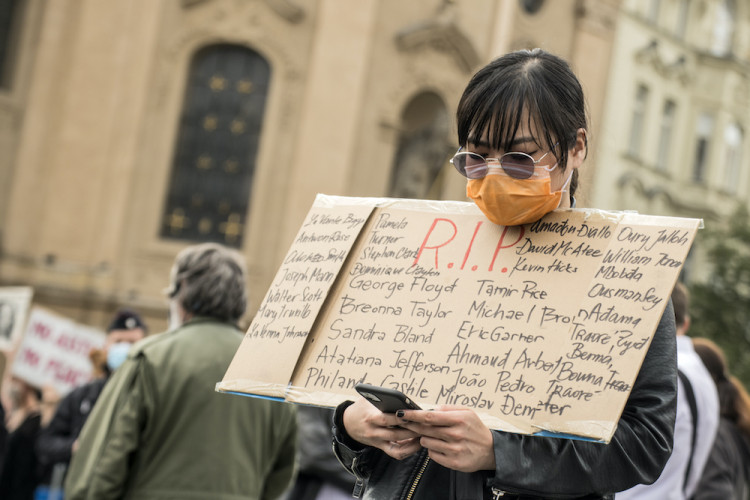 R.I.P.
Antwon Rose
Joseph Mann
Walter Scott
Pamela
Turner
Stephon Clark
Dominique Clayton
George Floyd
Breonna Taylor
Sandra Bland
Atatiana Jefferson
Philando Castile
Tamir Rice
Michael Brown
Eric Garner
Ahmaud Arbe
João Pedro
Miroslav Demeter
Amadou Diallo
David McAtee
Kevin Hicks
Oury Jalloh
William
Adama
Traoré,
Bouna
Traoré
NO JUSTICE
NO PEACE